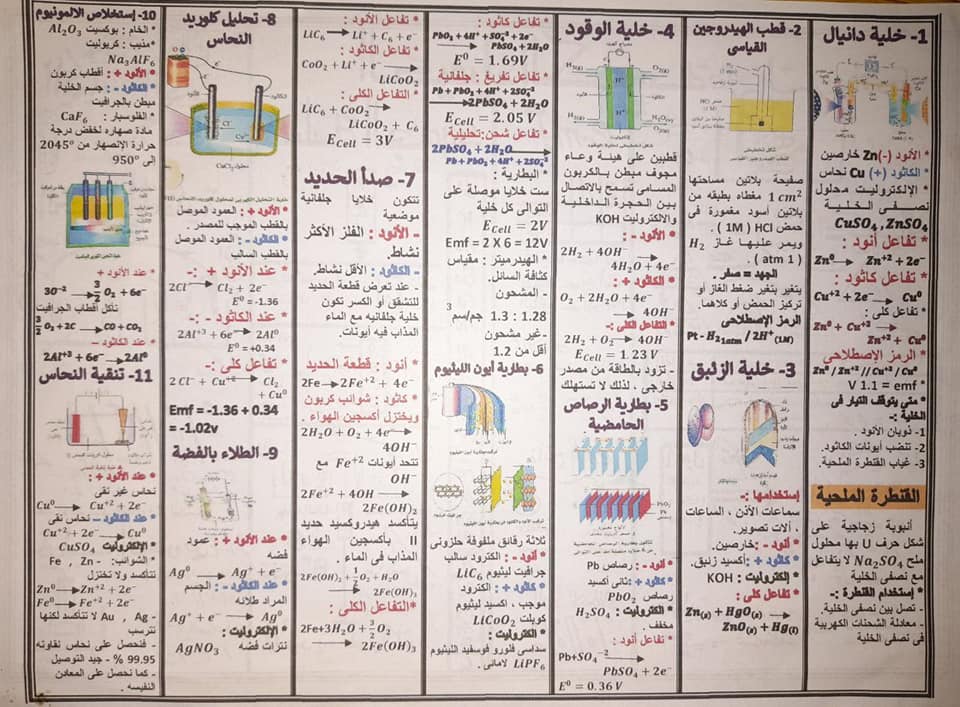 1- خلية دانيال
* الأنود (-) Zn خارصين
* الكاثود (+) Cu نحاس
* الإلكتروليت محلول
نصفى الخلية
CuSO4, ZnSO4
* تفاعل أنود :
Zn⁰ → Zn⁺² + 2e⁻
* تفاعل كاثود :
Cu⁺² + 2e⁻ → Cu⁰
* تفاعل كلى :
Zn⁰ + Cu⁺² →
Zn⁺² + Cu⁰
* الرمز الإصطلاحى
Zn⁰ / Zn⁺² // Cu⁺² / Cu⁰
V 1.1 = emf *
* متى يتوقف التيار فى
الخلية :-
1- ذوبان الأنود .
2- تنضب أيونات الكاثود.
3- غياب القنطرة الملحية.
القنطرة الملحية
أنبوبة زجاجية على
شكل حرف U بها محلول
ملح Na2SO4 لا يتفاعل
مع نصفى الخلية
* إستخدام القنطرة :-
- تصل بين نصفى الخلية.
- معادلة الشحنات الكهربية
فى نصفى الخلية
2- قطب الهيدروجين
القياسى
صفيحة بلاتين مساحتها
1 cm² مغطاه بطبقه من
بلاتين أسود مغمورة فى
حمض HCl ( 1M )
ويمر عليها غاز H2
( 1 atm ) .
الجهد = صفر .
يتغير بتغير ضغط الغاز أو
تركيز الحمض أو كلاهما.
الرمز الإصطلاحى
Pt - H2 1atm / 2H⁺ (1M)
3- خلية الزئبق
إستخدامها :-
سماعات الأذن ، الساعات
، آلات تصوير.
* أنود :- خارصين.
* كاثود : أكسيد زئبق.
* إلكتروليت : KOH
* تفاعل كلى :
Zn(s) + HgO(s) →
ZnO(s) + Hg(l)
4- خلية الوقود
قطبين على هيئة وعاء
مجوف مبطن بالكربون
المسامى تسمح بالاتصال
بين الحجرة الداخلية
والالكتروليت KOH
* الأنود :-
2H2 + 4OH⁻ →
4H2O + 4e⁻
* الكاثود :+
O2 + 2H2O + 4e⁻
→ 4OH⁻
* التفاعل الكلى :-
2H2 + O2 → 4OH⁻
ECell = 1.23 V
- تزود بالطاقة من مصدر
خارجى ، لذلك لا تستهلك
5- بطارية الرصاص
الحامضية
* أنود - : رصاص Pb
* كاثود + : ثانى أكسيد
رصاص PbO2
* إلكتروليت : H2SO4
مخفف .
* تفاعل أنود :
Pb+SO4⁻² →
PbSO4 + 2e⁻
E⁰ = 0.36 V
* تفاعل كاثود :
PbO2 + 4H⁺ + SO4⁻² + 2e⁻
→ PbSO4 + 2H2O
E⁰ = 1.69V
* تفاعل تفريغ : جلفانية
Pb + PbO2 + 4H⁺ + 2SO4⁻²
→ 2PbSO4 + 2H2O
ECell = 2.05 V
* تفاعل شحن: تحليلية
2PbSO4 + 2H2O →
Pb + PbO2 + 4H⁺ + 2SO4⁻²
* البطارية :
ست خلايا موصلة على
التوالى كل خلية
ECell = 2V
Emf = 2 X 6 = 12V
* الهيدرميتر : مقياس
كثافة السائل.
- المشحون
1.28 : 1.3 جم/سم³
- غير مشحون
أقل من 1.2
6- بطارية أيون الليثيوم
ثلاثة رقائق ملفوفة حلزونى
* أنود - : الكترود سالب
جرافيت ليثيوم LiC6
* كاثود + : الكترود
موجب ، اكسيد ليثيوم
كوبلت LiCoO2
* الكتروليت :
سداسى فلورو فوسفيد الليثيوم
LiPF6 لامائى .
* تفاعل الأنود :
LiC6 → Li⁺ + C6 + e⁻
* تفاعل الكاثود :
CoO2 + Li⁺ + e⁻ →
LiCoO2
* التفاعل الكلى :
LiC6 + CoO2 →
LiCoO2 + C6
ECell = 3V
7- صدأ الحديد
تتكون خلايا جلفانية
موضعية
- الأنود : الفلز الأكثر
نشاط.
- الكاثود : الأقل نشاط.
- عند تعرض قطعة الحديد
للتشقق أو الكسر تكون
خلية جلفانيه مع الماء
المذاب فيه أيونات.
* أنود : قطعة الحديد
2Fe → 2Fe⁺² + 4e⁻
* كاثود : شوائب كربون
ويختزل أكسجين الهواء .
2H2O + O2 + 4e⁻ →
4OH⁻
تتحد أيونات Fe⁺² مع
OH⁻
2Fe⁺² + 4OH →
2Fe(OH)2
يتأكسد هيدروكسيد حديد
II بأكسجين الهواء
المذاب فى الماء .
2Fe(OH)2 + ½O2 + H2O
→ 2Fe(OH)3
*التفاعل الكلى :
2Fe+3H2O + 3/2 O2
→ 2Fe(OH)3
8- تحليل كلوريد
النحاس
محلول CuCl2
* الأنود + : العمود الموصل
بالقطب الموجب للمصدر .
* الكاثود - : العمود الموصل
بالقطب السالب
* عند الأنود + :-
2Cl⁻ → Cl2 + 2e⁻
E⁰ = -1.36
* عند الكاثود - :-
2Al⁺³ + 6e⁻ → 2Al⁰
E⁰ = +0.34
* تفاعل كلى :-
2 Cl⁻ + Cu⁺² → Cl2
+ Cu⁰
Emf = -1.36 + 0.34
= -1.02v
9- الطلاء بالفضة
* عند الأنود + : عمود
فضه
Ag⁰ → Ag⁺ + e⁻
* عند الكاثود - : الجسم
المراد طلائه
Ag⁺ + e⁻ → Ag⁰
* الإلكتروليت :
نترات فضه AgNO3
10- إستخلاص الالمونيوم
* الخام : بوكسيت Al2O3
*مذيب : كريوليت
Na3AlF6
* الأنود + : أقطاب كربون
* الكاثود - : جسم الخلية
مبطن بالجرافيت
* الفلوسبار : CaF6
مادة صهاره لخفض درجة
حرارة الإنصهار من 2045°
إلى 950°
* عند الأنود +
3O⁻² → 3/2 O2 + 6e⁻
تأكل أقطاب الجرافيت
3/2 O2 + 2C → CO + CO2
* عند الكاثود -
2Al⁺³ + 6e⁻ → 2Al⁰
11- تنقية النحاس
* عند الأنود + :
نحاس غير نقى
Cu⁰ → Cu⁺² + 2e⁻
* عند الكاثود – نحاس نقى
Cu⁺² + 2e⁻ → Cu⁰
* الإلكتروليت CuSO4
* الشوائب: - Fe , Zn
تتأكسد ولا تختزل
Zn⁰ → Zn⁺² + 2e⁻
Fe⁰ → Fe⁺² + 2e⁻
- Au , Ag لا تتأكسد لكنها
تترسب
- فنحصل على نحاس نقاوته
99.95 % - جيد التوصيل
- كما نحصل على المعادن
النفيسه .